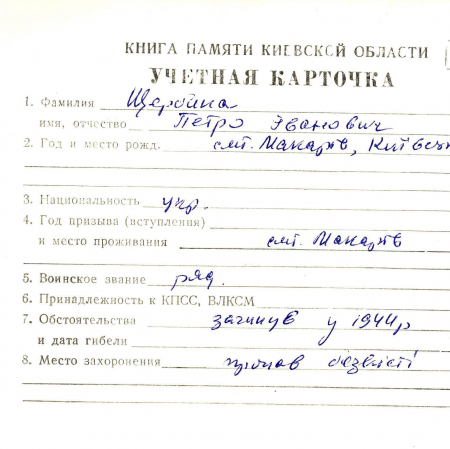 КНИГА ПАМЯТИ КИЕВСКОЙ ОБЛАСТИ
УЧЕТНАЯ КАРТОЧКА
1. Фамилия Щербина
имя, отчество Петро Іванович
2. Год и место рожд. смт. Макарів,
3. Национальность укр.
4. Год призыва (вступления)
и место проживания смт. Макарів
5. Воинское звание ряд.
6. Принадлежность к КПСС, ВЛКСМ
7. Обстоятельства загинув у 1944р
и дата гибели
8. Место захоронения пропав безвісті